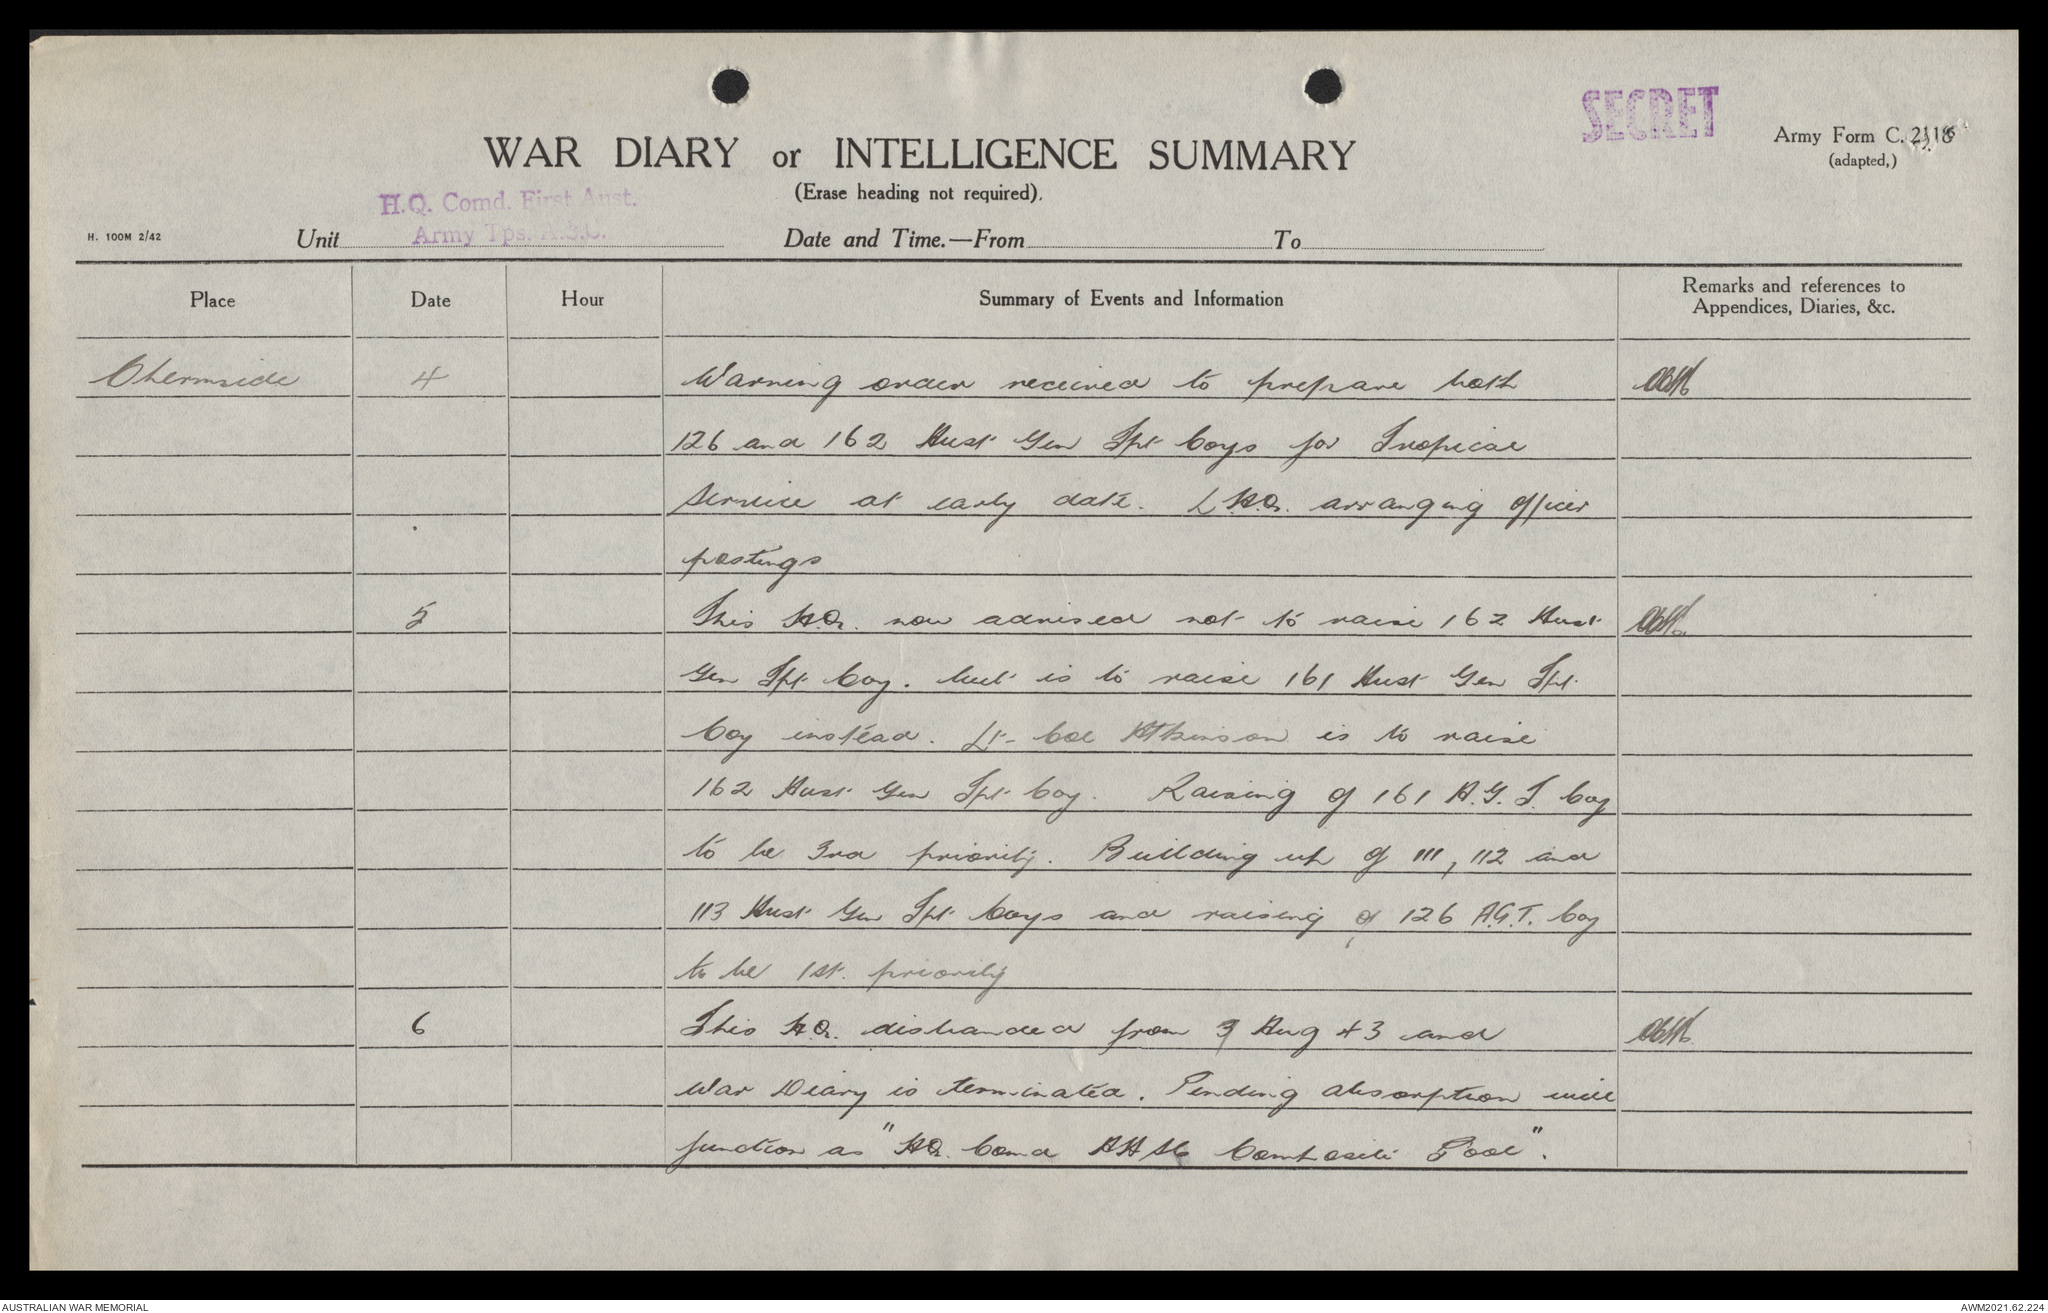 SECRET
Army Form C. 2118
(adapted,)
WAR DIARY or INTELLIGENCE SUMMARY
(Erase heading not required).
H.Q. Comd. First Aust.
Army Tps. A.S.C.
H. 100M 2/42
Unit
Date and Time.—From
To
Place
Date
Hour
Summary of Events and Information
Remarks and references to
Appendices, Diaries, &c.
Chermside 4 Warning order received to prepare both
126 and 162 Aust Gen Tpt Coys for Tropical
Service at early date. L.H.Q. arranging officer
postings
5 This H.Q. now advised not to raise 162 Aust
Gen Tpt Coy. but is to raise 161 Aust Gen Tpt
Coy instead. Lt-Col Atkinson is to raise
162 Aust Gen Tpt Coy. Raising of 161 A.G.T. Coy
to be 3rd priority. Building up of 111, 112 and
113 Aust Gen Tpt Coys and raising of 126 A.G.T. Coy
to be 1st. priority
6 This H.Q. disbanded from 3 Aug 43 and
War Diary is terminated. Pending absorption will
function as "HQ. Comd AASC Composite Pool".
AUSTRALIAN WAR MEMORIAL
AWM2021.62.224